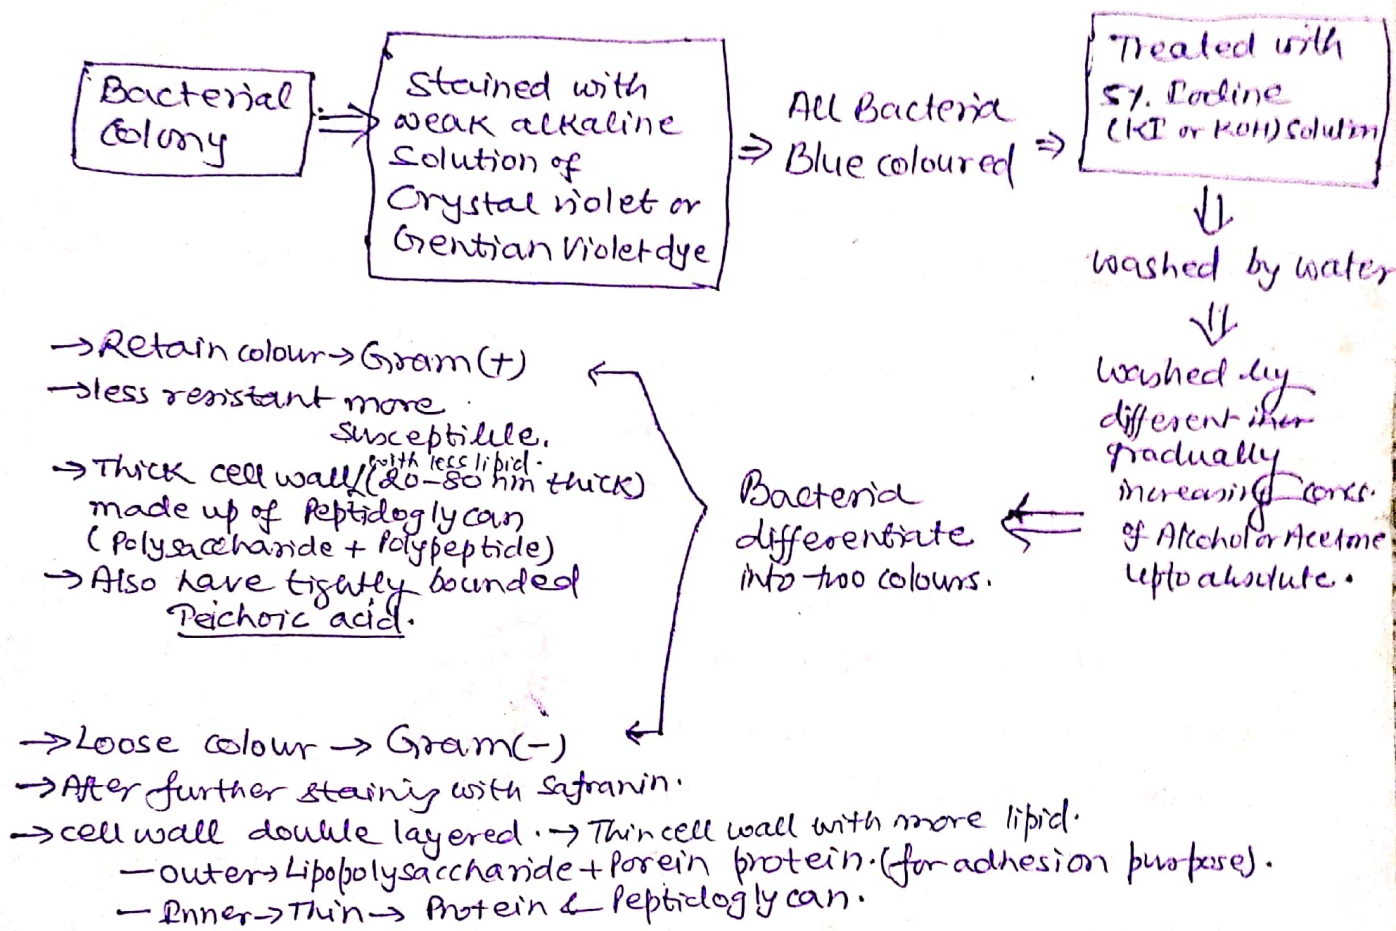 Bacterial
Colony
Stained with
weak alkaline
Solution of
Crystal violet or
Gentian Violet dye
All Bacteria
Blue coloured
Treated with
5%. Iodine
(KI or KOH) Solution
washed by water
washed by
different
gradually
increasing concs.
of Alcohol or Acetone
upto absolute.
Bacteria
differentiate
into two colours.
→ Retain colour → Gram (+)
→ less resistant more
susceptible.
with less lipid.
→ Thick cell wall (20-80 nm thick)
made up of Peptidoglycan
(Polysaccharide + Polypeptide)
→ Also have tightly bounded
Teichoic acid.
→ Loose colour → Gram (-)
→ After further staining with Safranin.
→ cell wall double layered. → Thin cell wall with more lipid.
- outer → Lipopolysaccharide + Porein protein. (for adhesion purpose).
- Inner → Thin → Protein & Peptidoglycan.